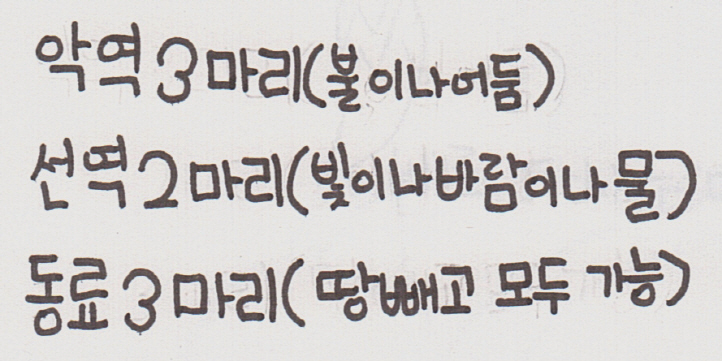 악역 3마리(불이나어둠)
선역 2마리(빛이나바람이나물)
동료 3마리( 땅빼고 모두 가능)